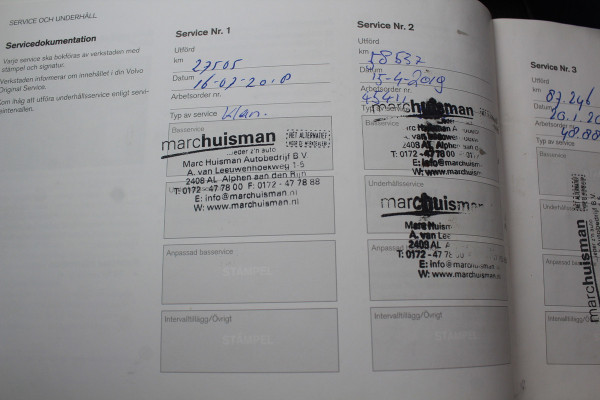 SERVICE OCH UNDERHÅLL
Servicedokumentation
Varje service ska bokföras av verkstaden med
stämpel och signatur.
Verkstaden informerar om innehållet i din Volvo
Original Service.
Kom ihåg att utföra underhållsservice enligt servi-
ceintervallen.
Service Nr. 1
Utförd
km 27505
Datum 16-07-2018
Arbetsorder nr.
Typ av service klan.
Basservice
marchuisman
...ieder z'n auto
HET ALTERNATIEF
VOOR DE MERKDEALER
Marc Huisman Autobedrijf B.V.
A. van Leeuwenhoekweg 1-5
2408 AL Alphen aan den Rijn
T: 0172 - 47 78 00 F: 0172 - 47 78 88
E: info@marchuisman.nl
W: www.marchuisman.nl
Anpassad basservice
STÄMPEL
Intervalltillägg/Övrigt
STÄMPEL
Service Nr. 2
Utförd
km 58537
Datum 15-4-2019
Arbetsorder nr.
Typ av service
marchuisman
2408 AL Alphen
T: 0172 - 47 78 00
E: info@marchuisman
W: www.marchuisman
Underhållsservice
marchuisman
Marc Huism
A. van Lee
2408 AL A
T: 0172 - 47 78
E: info@marchuisman
W: www.marchuisman
Intervalltillägg/Övrigt
STÄMPEL
Service Nr. 3
Utförd
km 87.246
Datum
Arbetsorder nr.
Typ av service
Basservice
Underhållss
Anpassad bas
marchuisman
Intervalltillägg